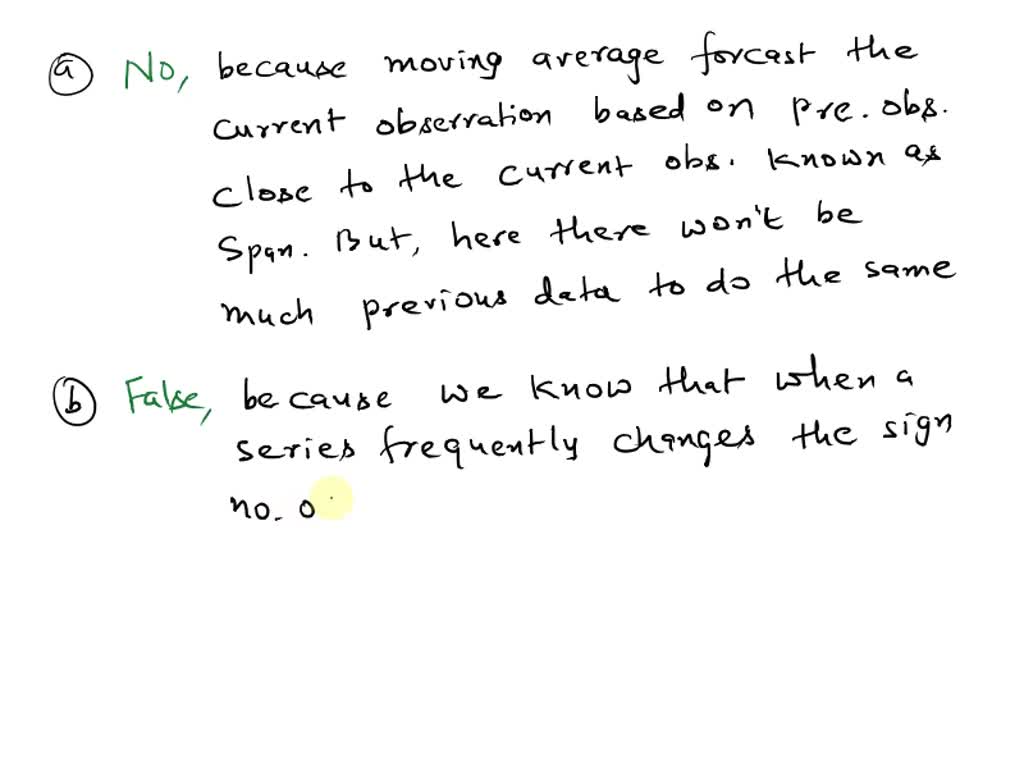 a No, because moving average forcast the
current observation based on pre. obs.
close to the current obs. known as
Span. But, here there won't be
much previous data to do the same
b False, because we know that when a
series frequently changes the sign
no. o